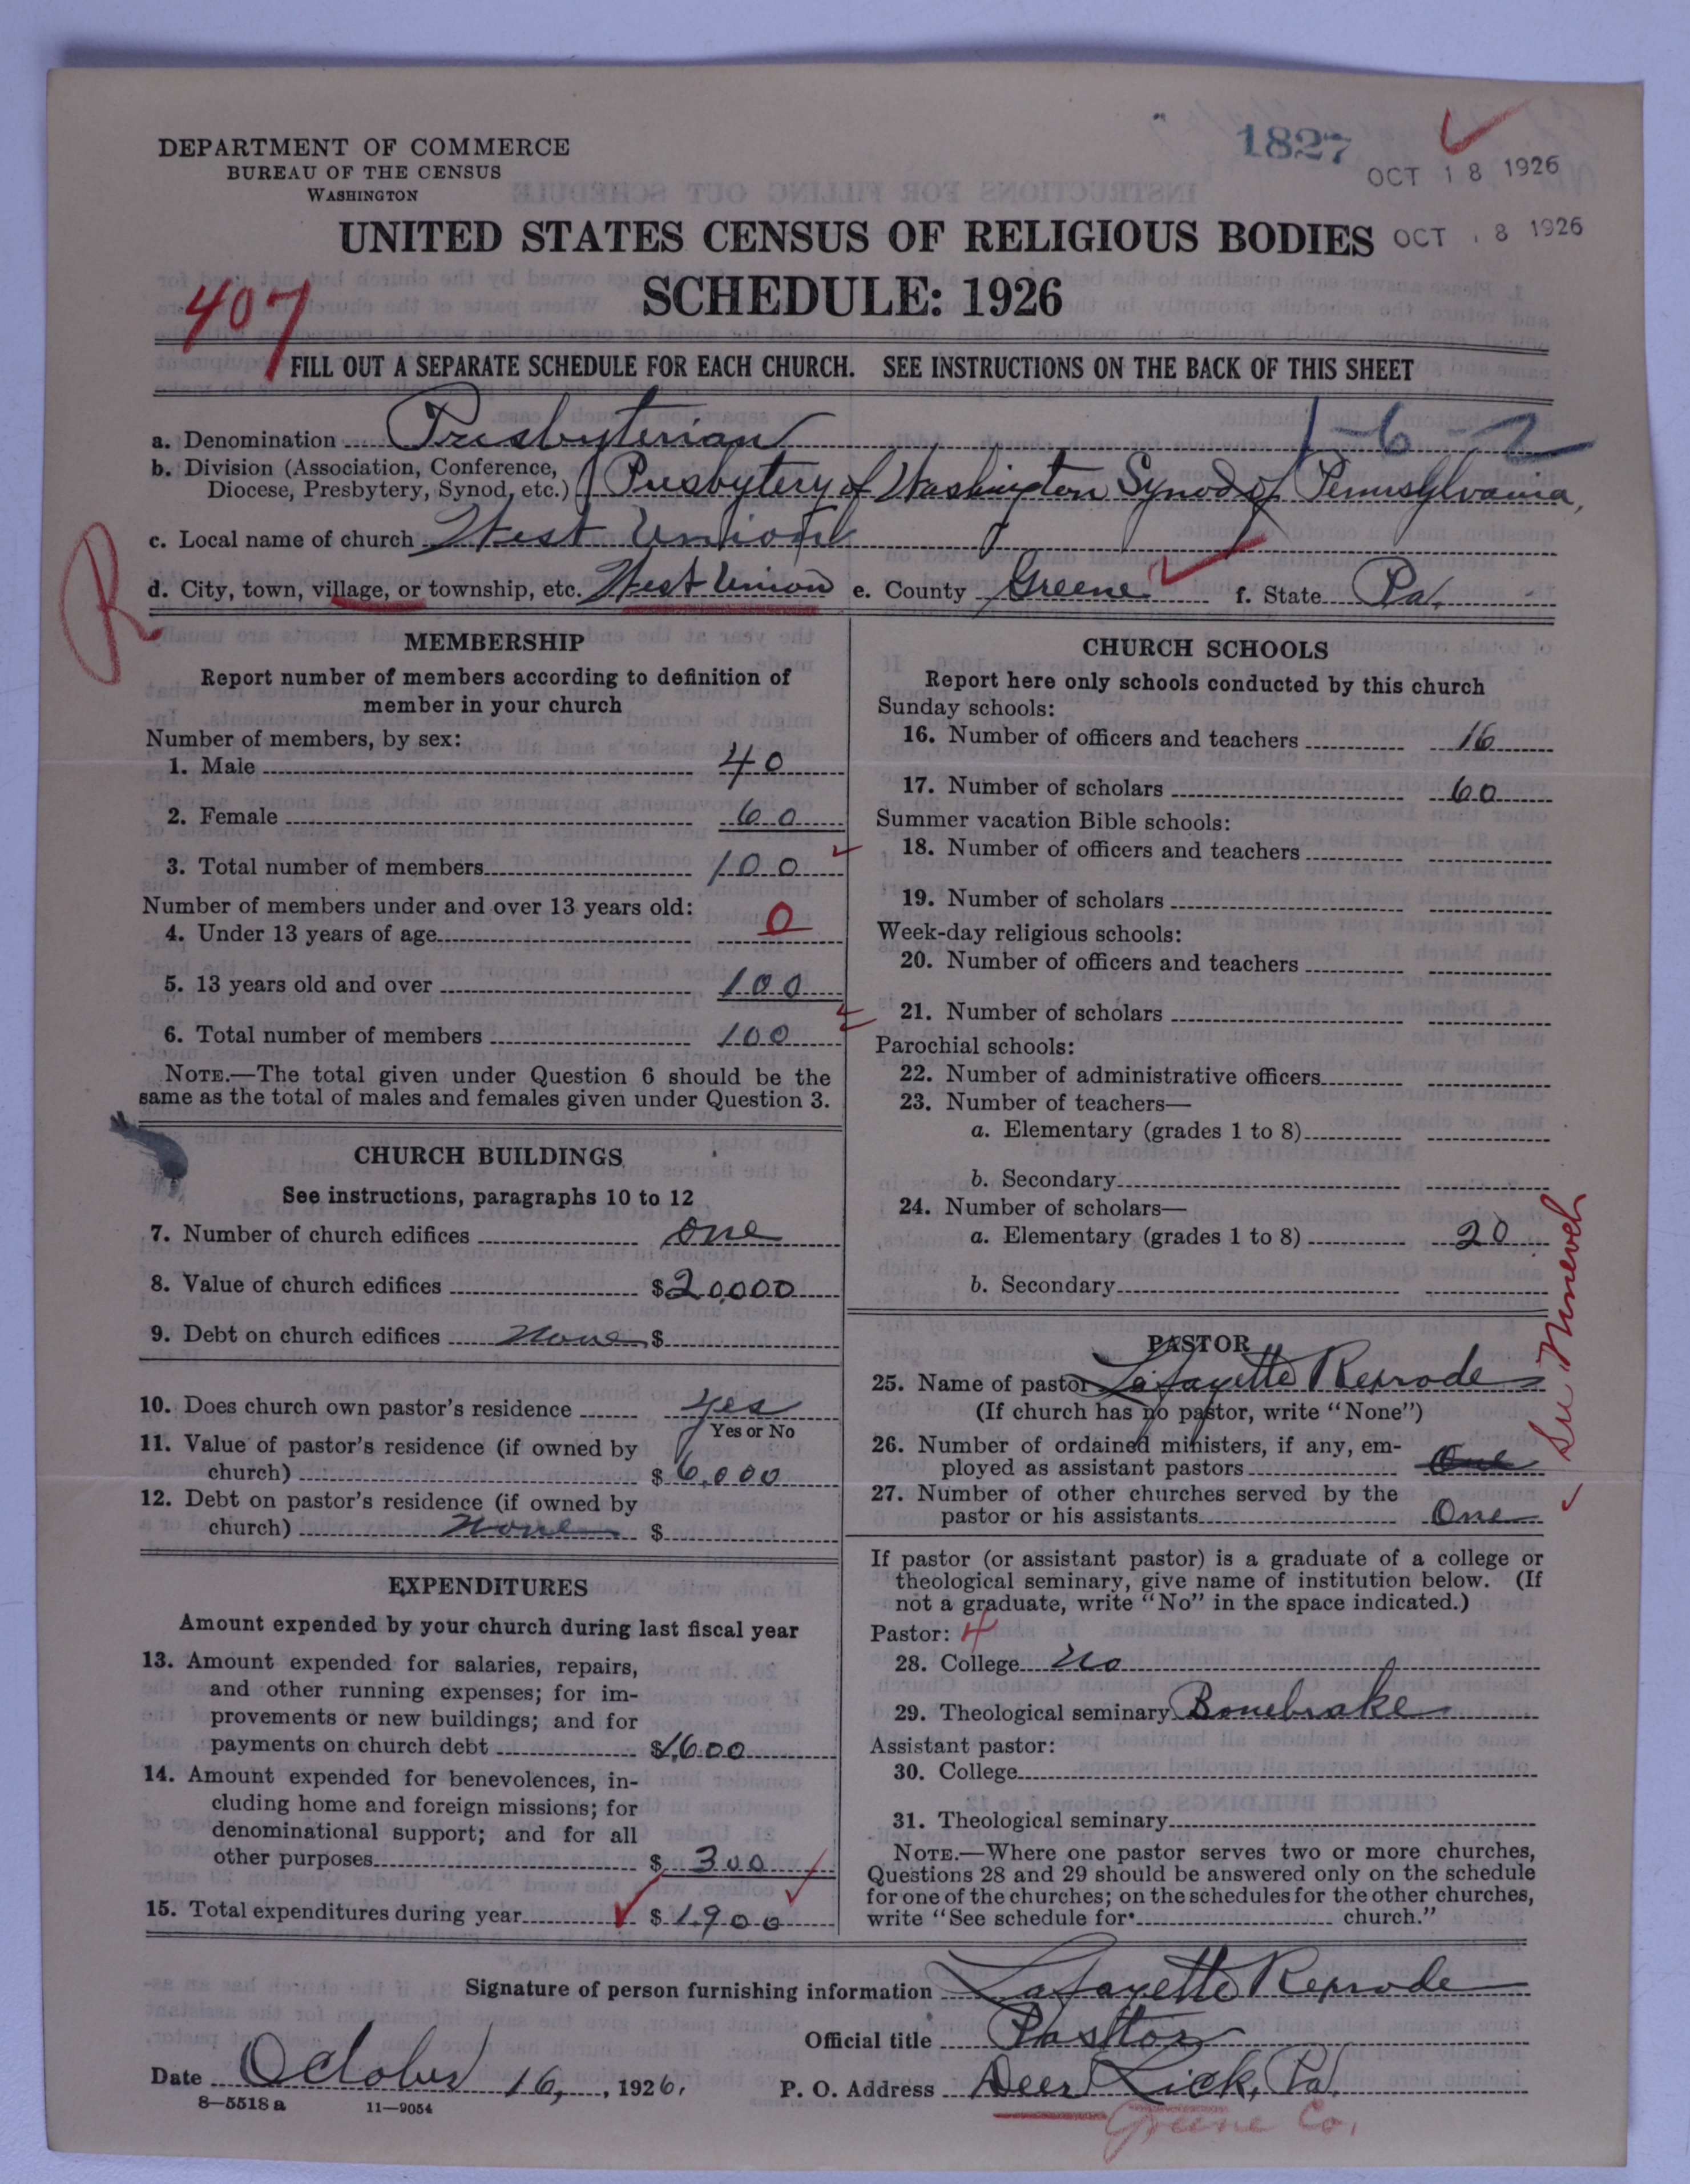 DEPARTMENT OF COMMERCE
BUREAU OF THE CENSUS
WASHINGTON
1827
OCT 18 1926
UNITED STATES CENSUS OF RELIGIOUS BODIES
OCT 18 1926
SCHEDULE: 1926
407
FILL OUT A SEPARATE SCHEDULE FOR EACH CHURCH. SEE INSTRUCTIONS ON THE BACK OF THIS SHEET
a. Denomination Presbyterian 1-6-2
b. Division (Association, Conference, Diocese, Presbytery, Synod, etc.) Presbytery of Washington Synod of Pennsylvania,
c. Local name of church West Union
R
d. City, town, village, or township, etc. West Union e. County Greene f. State Pa.
MEMBERSHIP
Report number of members according to definition of
member in your church
Number of members, by sex:
1. Male 40
2. Female 60
3. Total number of members 100
Number of members under and over 13 years old:
4. Under 13 years of age 0
5. 13 years old and over 100
6. Total number of members 100
NOTE.—The total given under Question 6 should be the
same as the total of males and females given under Question 3.
CHURCH BUILDINGS
See instructions, paragraphs 10 to 12
7. Number of church edifices one
8. Value of church edifices $20,000
9. Debt on church edifices None $
10. Does church own pastor's residence yes
Yes or No
11. Value of pastor's residence (if owned by
church) $6,000
12. Debt on pastor's residence (if owned by
church) None $
EXPENDITURES
Amount expended by your church during last fiscal year
13. Amount expended for salaries, repairs,
and other running expenses; for im-
provements or new buildings; and for
payments on church debt $1,600
14. Amount expended for benevolences, in-
cluding home and foreign missions; for
denominational support; and for all
other purposes $300
15. Total expenditures during year $1,900
CHURCH SCHOOLS
Report here only schools conducted by this church
Sunday schools:
16. Number of officers and teachers 16
17. Number of scholars 60
Summer vacation Bible schools:
18. Number of officers and teachers
19. Number of scholars
Week-day religious schools:
20. Number of officers and teachers
21. Number of scholars
Parochial schools:
22. Number of administrative officers
23. Number of teachers—
a. Elementary (grades 1 to 8)
b. Secondary
24. Number of scholars—
a. Elementary (grades 1 to 8) 20
b. Secondary
PASTOR
25. Name of pastor Lafayette Rexrode
(If church has no pastor, write "None")
26. Number of ordained ministers, if any, em-
ployed as assistant pastors One
27. Number of other churches served by the
pastor or his assistants One
If pastor (or assistant pastor) is a graduate of a college or
theological seminary, give name of institution below. (If
not a graduate, write "No" in the space indicated.)
Pastor: 4
28. College No
29. Theological seminary Bonebrake
Assistant pastor:
30. College
31. Theological seminary
NOTE.—Where one pastor serves two or more churches,
Questions 28 and 29 should be answered only on the schedule
for one of the churches; on the schedules for the other churches,
write "See schedule for church."
Signature of person furnishing information Lafayette Rexrode
Official title Pastor
Date October 16, 1926. P. O. Address Deer Lick, Pa.
8—5518 a 11—9054
Greene Co.